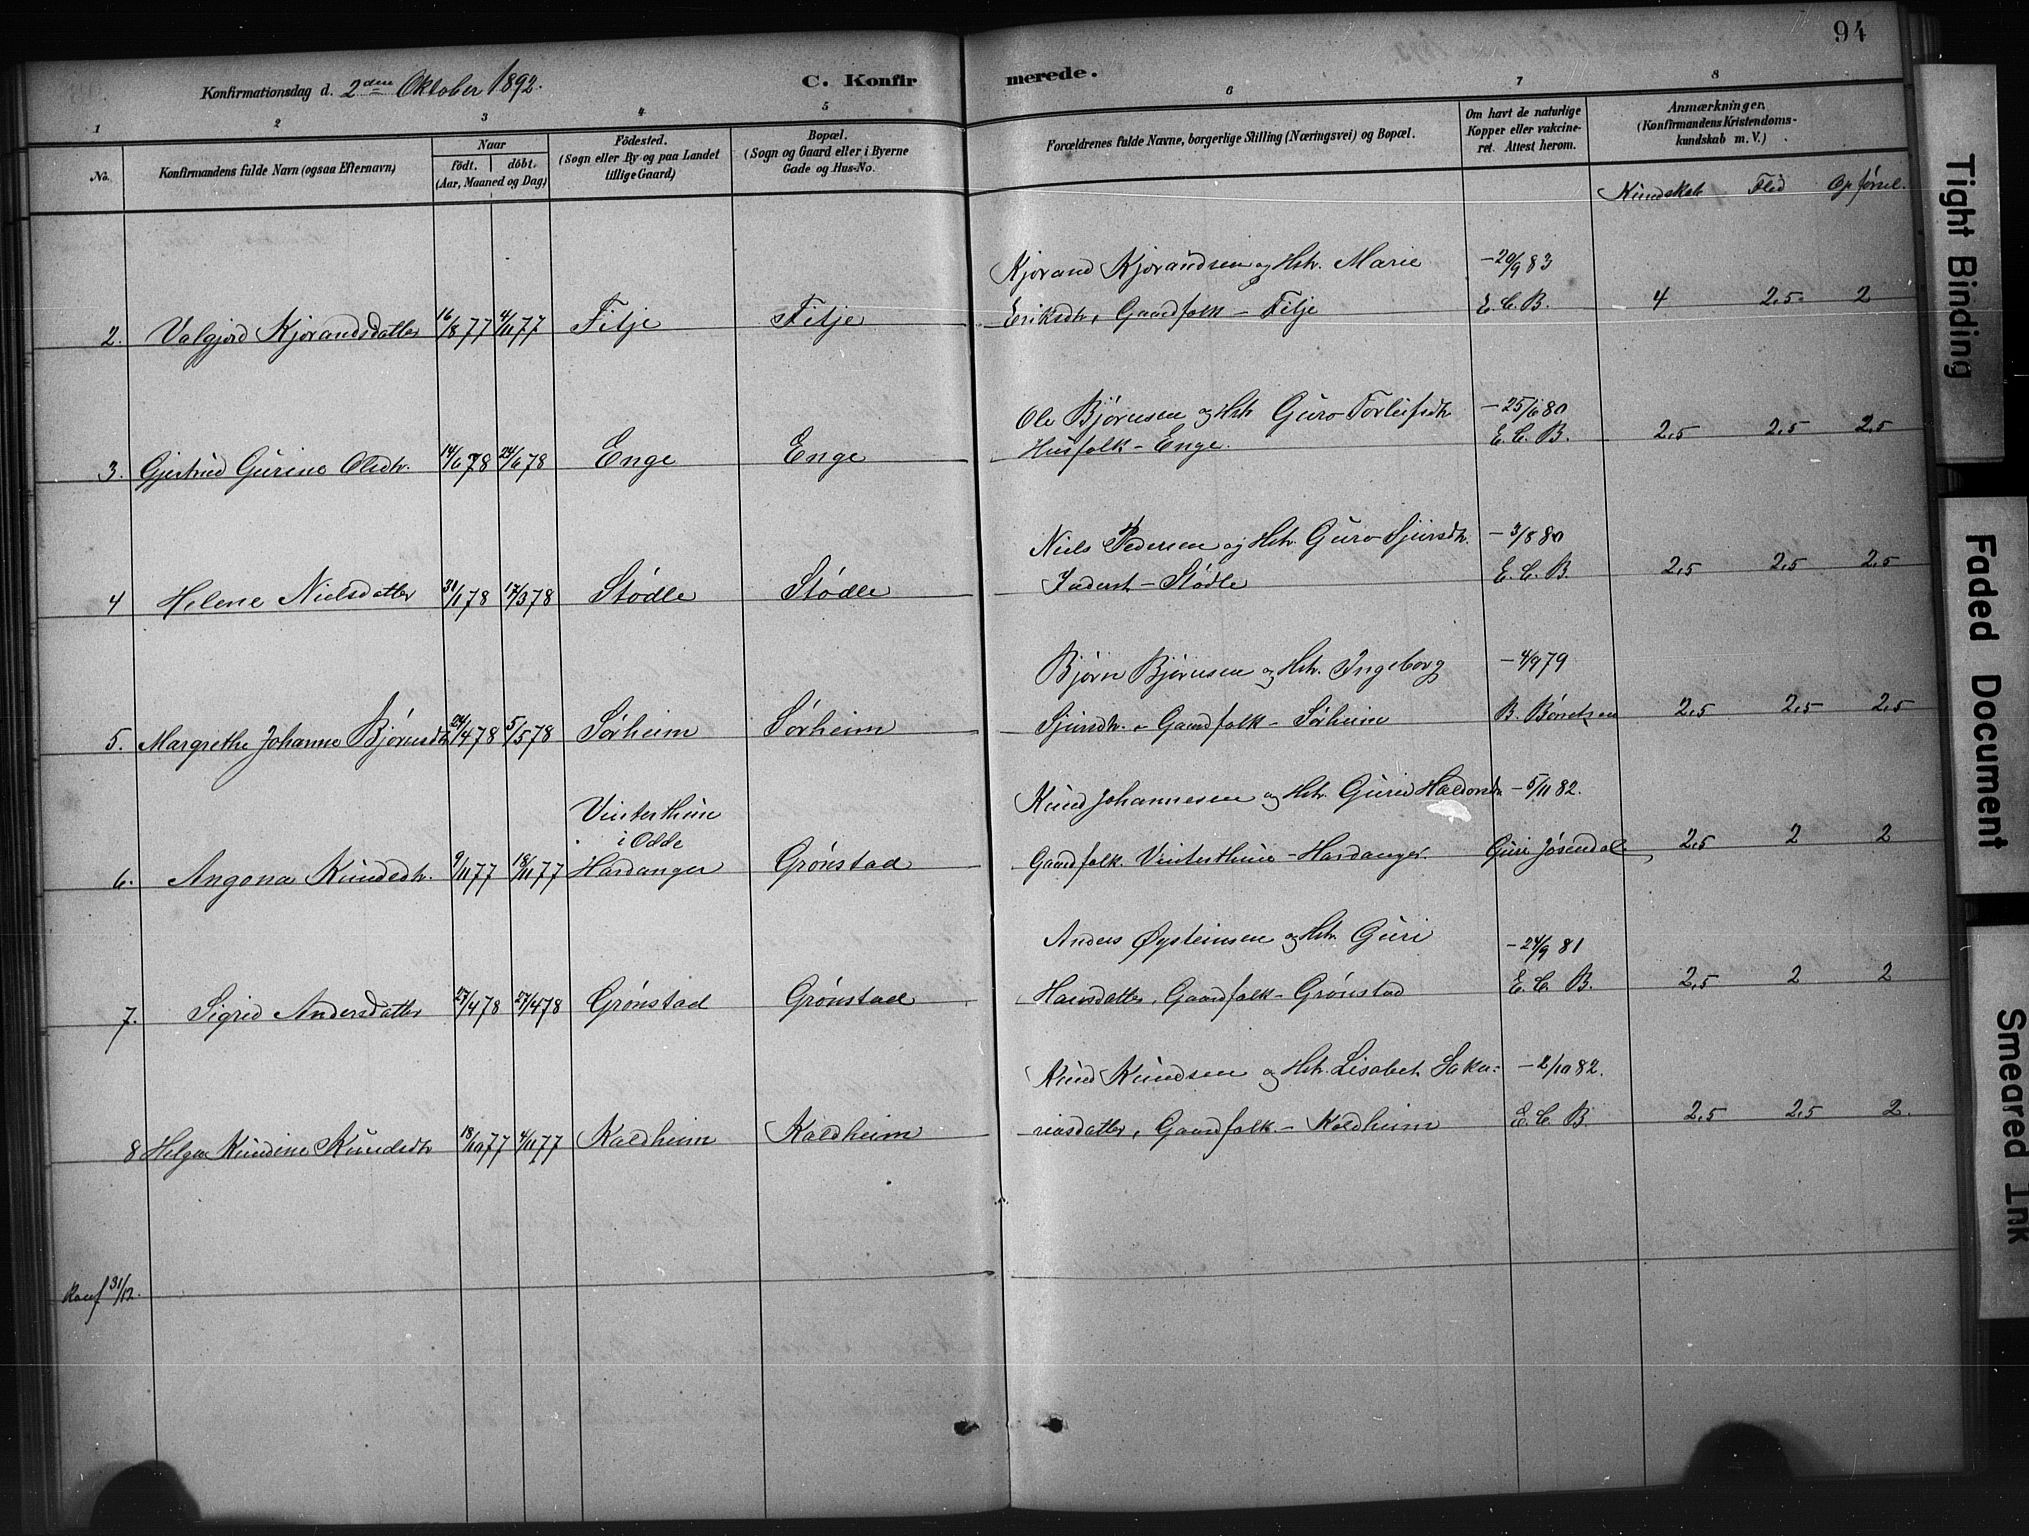 94
Konfirmationsdag d. 2den Oktober 1892.
C. Konfirmerede.
1 2 3 4 5 6 7 8
No.
Konfirmandens fulde Navn (ogsaa Efternavn)
Naar
födt. döbt.
(Aar, Maaned og Dag)
Födested.
(Sogn eller By og paa Landet
tillige Gaard)
Bopæl.
(Sogn og Gaard eller i Byerne
Gade og Hus-No.
Forældrenes fulde Navne, borgerlige Stilling (Næringsvei) og Bopæl.
Om havt de naturlige
Kopper eller vakcine-
ret. Attest herom.
Anmærkninger.
(Konfirmandens Kristendoms-
kundskab m. V.)
Kundskab Flid Opførsel.
Kjorand Kjorandsen og Hstr. Marie - 20/9 83
2. Valgjord Kjorandsdatter 16/8 77 4/11 77 Fitje Fitje Eriksdtr, Gaardfolk - Fitje E. C. B. 4 2,5 2
Ole Bjørnsen og Hstr Guro Torleifsdtr - 25/6 80
3. Gjertrud Gurine Olsdtr. 14/6 78 24/6 78 Enge Enge Husfolk - Enge. E. C. B. 2,5 2,5 2,5
Niels Pedersen og Hstr. Guro Sjursdtr. - 3/8 80
4 Helene Nielsdatter 30/1 78 17/3 78 Stødle Stødle Inderst - Stødle E. C. B. 2,5 2,5 2,5
Bjørn Bjørnsen og Hstr. Ingeborg - 4/9 79
5. Margrethe Johanne Bjørnsdtr 24/4 78 5/5 78 Sørheim Sørheim Sjursdtr. - Gaardfolk - Sørheim B. Børretzen 2,5 2,5 2,5
Vinterthun
i Odde
Knud Johannesen og Hstr. Gurid Haldorsdtr - 5/11 82.
6. Angona Knudsdtr. 9/11 77 18/11 77 Hardanger Grønstad Gaardfolk Vinterthun - Hardanger. Guri Jøsendal, 2,5 2 2
Anders Øysteinsen og Hstr. Guri - 24/9 81
7. Sigrid Andersdatter 27/4 78 27/4 78 Grønstad Grønstad Hansdatter, Gaardfolk - Grønstad E. C. B. 2,5 2 2
Knud Knudsen og Hstr. Lisabet Saka= - 2/10 82.
8 Helga Knudine Knudsdtr 18/10 77 4/11 77 Kaldheim Kaldheim riasdatter, Gaardfolk - Kaldheim E. C. B. 2,5 2,5 2.
Konf 31/12.
Tight Binding
Faded Document
Smeared Ink